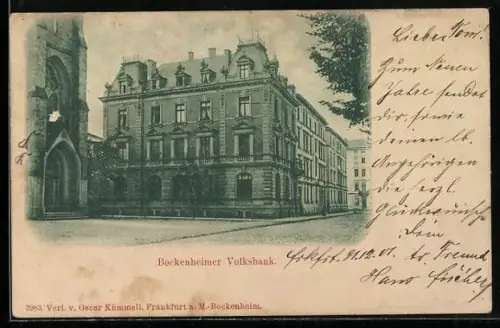 Lieber Toni!
Zum Neuen
Jahre sendet
dir, sowie
deinen lb.
Angehörigen
die herzl.
Glückwünsche
Dein
tr. Freund
Hans Fischer
Frkfrt. 31.12.01.
Bockenheimer Volksbank.
3983 Verl. v. Oscar Kümmell, Frankfurt a. M.-Bockenheim.